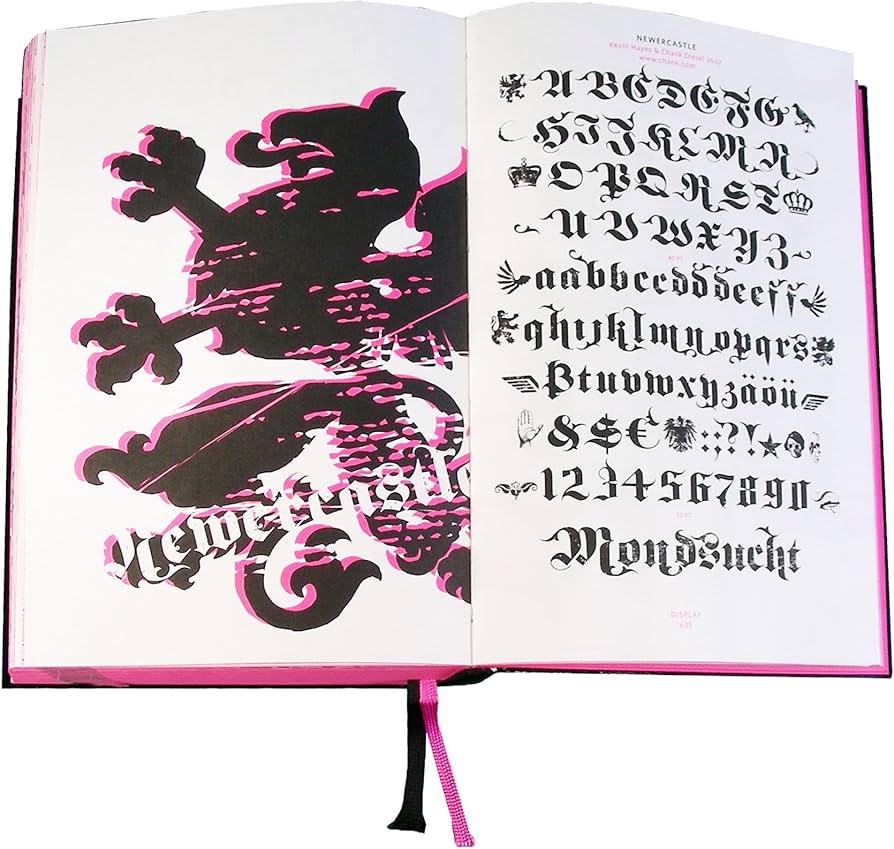 Newercastle
NEWERCASTLE
Kevin Hayes & Chank Diesel 2007
www.chank.com
ABCDEFG
HIJKLMN
OPQRST
UVWXYZ
40 PT
aabbccdddeeff
ghijklmnopqrs
ßtuvwxyzäöü
&$€:;?!
1234567890
72 PT
Mondsucht
DISPLAY
635